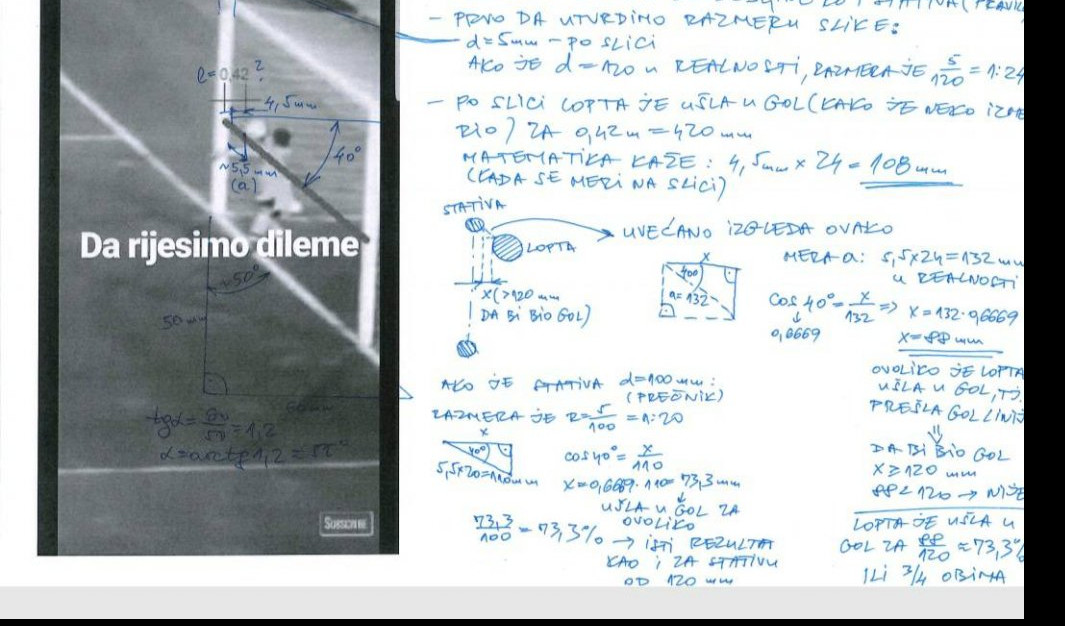 l=0,42 ?
4,5mm
40°
~5,5mm
(a)
Da rijesimo dileme
~50°
50mm
60mm
tgα= 60/50 =1,2
SUBSCRIBE
- PRVO DA UTVRDIMO RAZMERU SLIKE:
d=5mm - PO SLICI
AKO JE d=120 U REALNOSTI, RAZMERA JE 5/120 = 1:24
- PO SLICI LOPTA JE UŠLA U GOL (KAKO JE NEKO IZME
RIO) ZA 0,42m = 420 mm
MATEMATIKA KAŽE: 4,5mm x 24 = 108mm
(KADA SE MERI NA SLICI)
STATIVA
LOPTA
UVEĆANO IZGLEDA OVAKO
X(>120 mm
DA BI BIO GOL)
x
40°
a=132
MERA a: 5,5x24=132 mm
U REALNOSTI
cos 40°= x/132 => x=132·0,6669
0,6669
X=88 mm
OVOLIKO JE LOPTA
UŠLA U GOL, TJ.
PREŠLA GOL LINIJ
DA BI BIO GOL
X≥120 mm
88<120 → NIJE
LOPTA JE UŠLA U
GOL ZA 88/120 ≈73,3%
ILI 3/4 OBIMA
AKO JE STATIVA d=100mm:
(PREČNIK)
RAZMERA JE R= 5/100 =1:20
x
40°
5,5x20=110mm
cos40°= x/110
X=0,6669·110= 73,3mm
UŠLA U GOL ZA
OVOLIKO
73,3/100 =73,3% → ISTI REZULTAT
KAO I ZA STATIVU
OD 120 mm